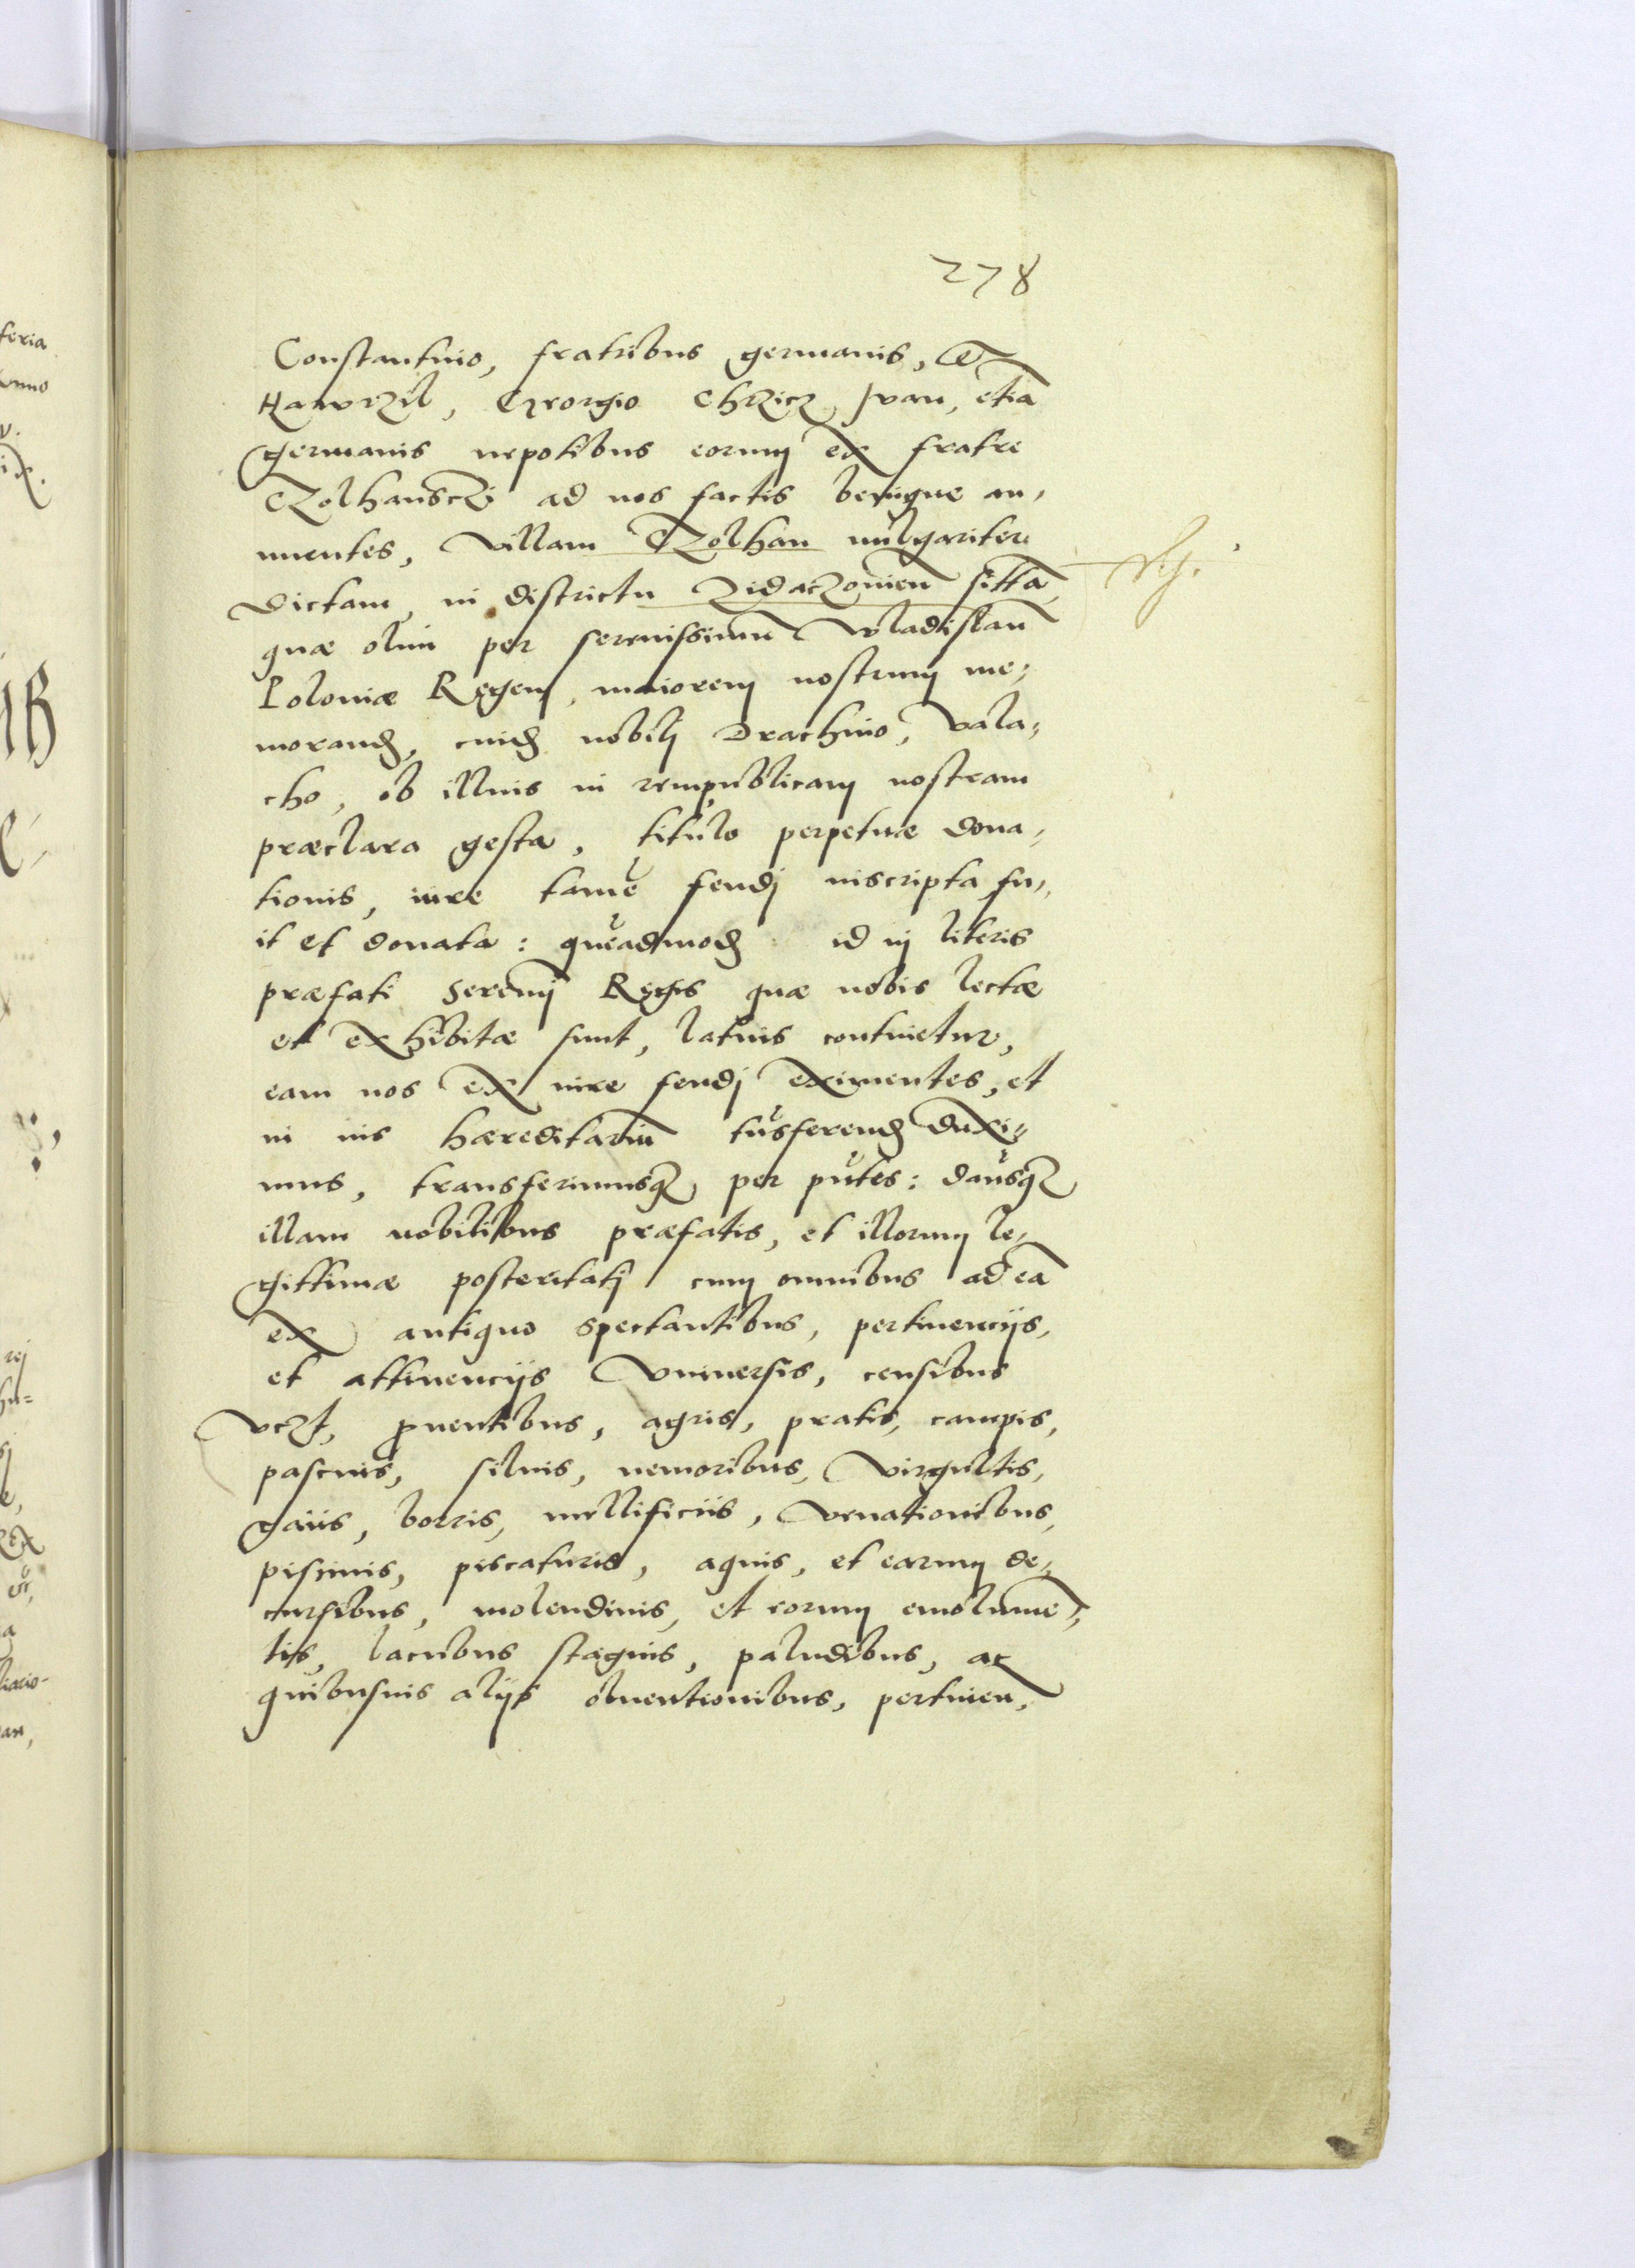 278
Constantino, fratribus germanis, et
Hawrzil, Georgio Chrzicz, Iwan, etiā
germanis nepotibus eorum ex fratre
Czolhansczi ad nos factis benigne an,
nuentes, villam Czolhan vulgariter
dictam, in districtu Zidaczouien̄ sittā
quæ olim per serenissimū Wladislaū
Poloniæ Regem, maiorem nostrum me,
morand, cuid nobili Drachino, Vala,
cho, ob illius in rempublicam nostram
præclara gesta, titulo perpetuæ dona,
tionis, iure tamē feudj inscripta fu,
it et donata: quēadmod id in literis
præfati Serenj Regis quæ nobis lectæ
et exhibitæ sunt, latius continetur,
eam nos ex iure feudj eximentes, et
in ius hæreditariū trāsferend duxi,
mus, transferimusq, per pn̄tes: dāusq
illam nobilibus præfatis, et illorum le,
gittimæ posteritatj cum omnibus ad eā
ex antiquo spectantibus, pertinencijs,
et attinencijs vniuersis, censibus
vczt, prouentibus, agris, pratis, campis,
pascuis, siluis, nemoribus, virgultis,
gaiis, borris, mellificiis, venationibus,
piscinis, piscaturis, aquis, et earum de,
cursibus, molendinis, et eorum emolumē,
tis, lacubus stagnis, paludibus, ac
quibusuis alijs obuentionibus, pertinen,